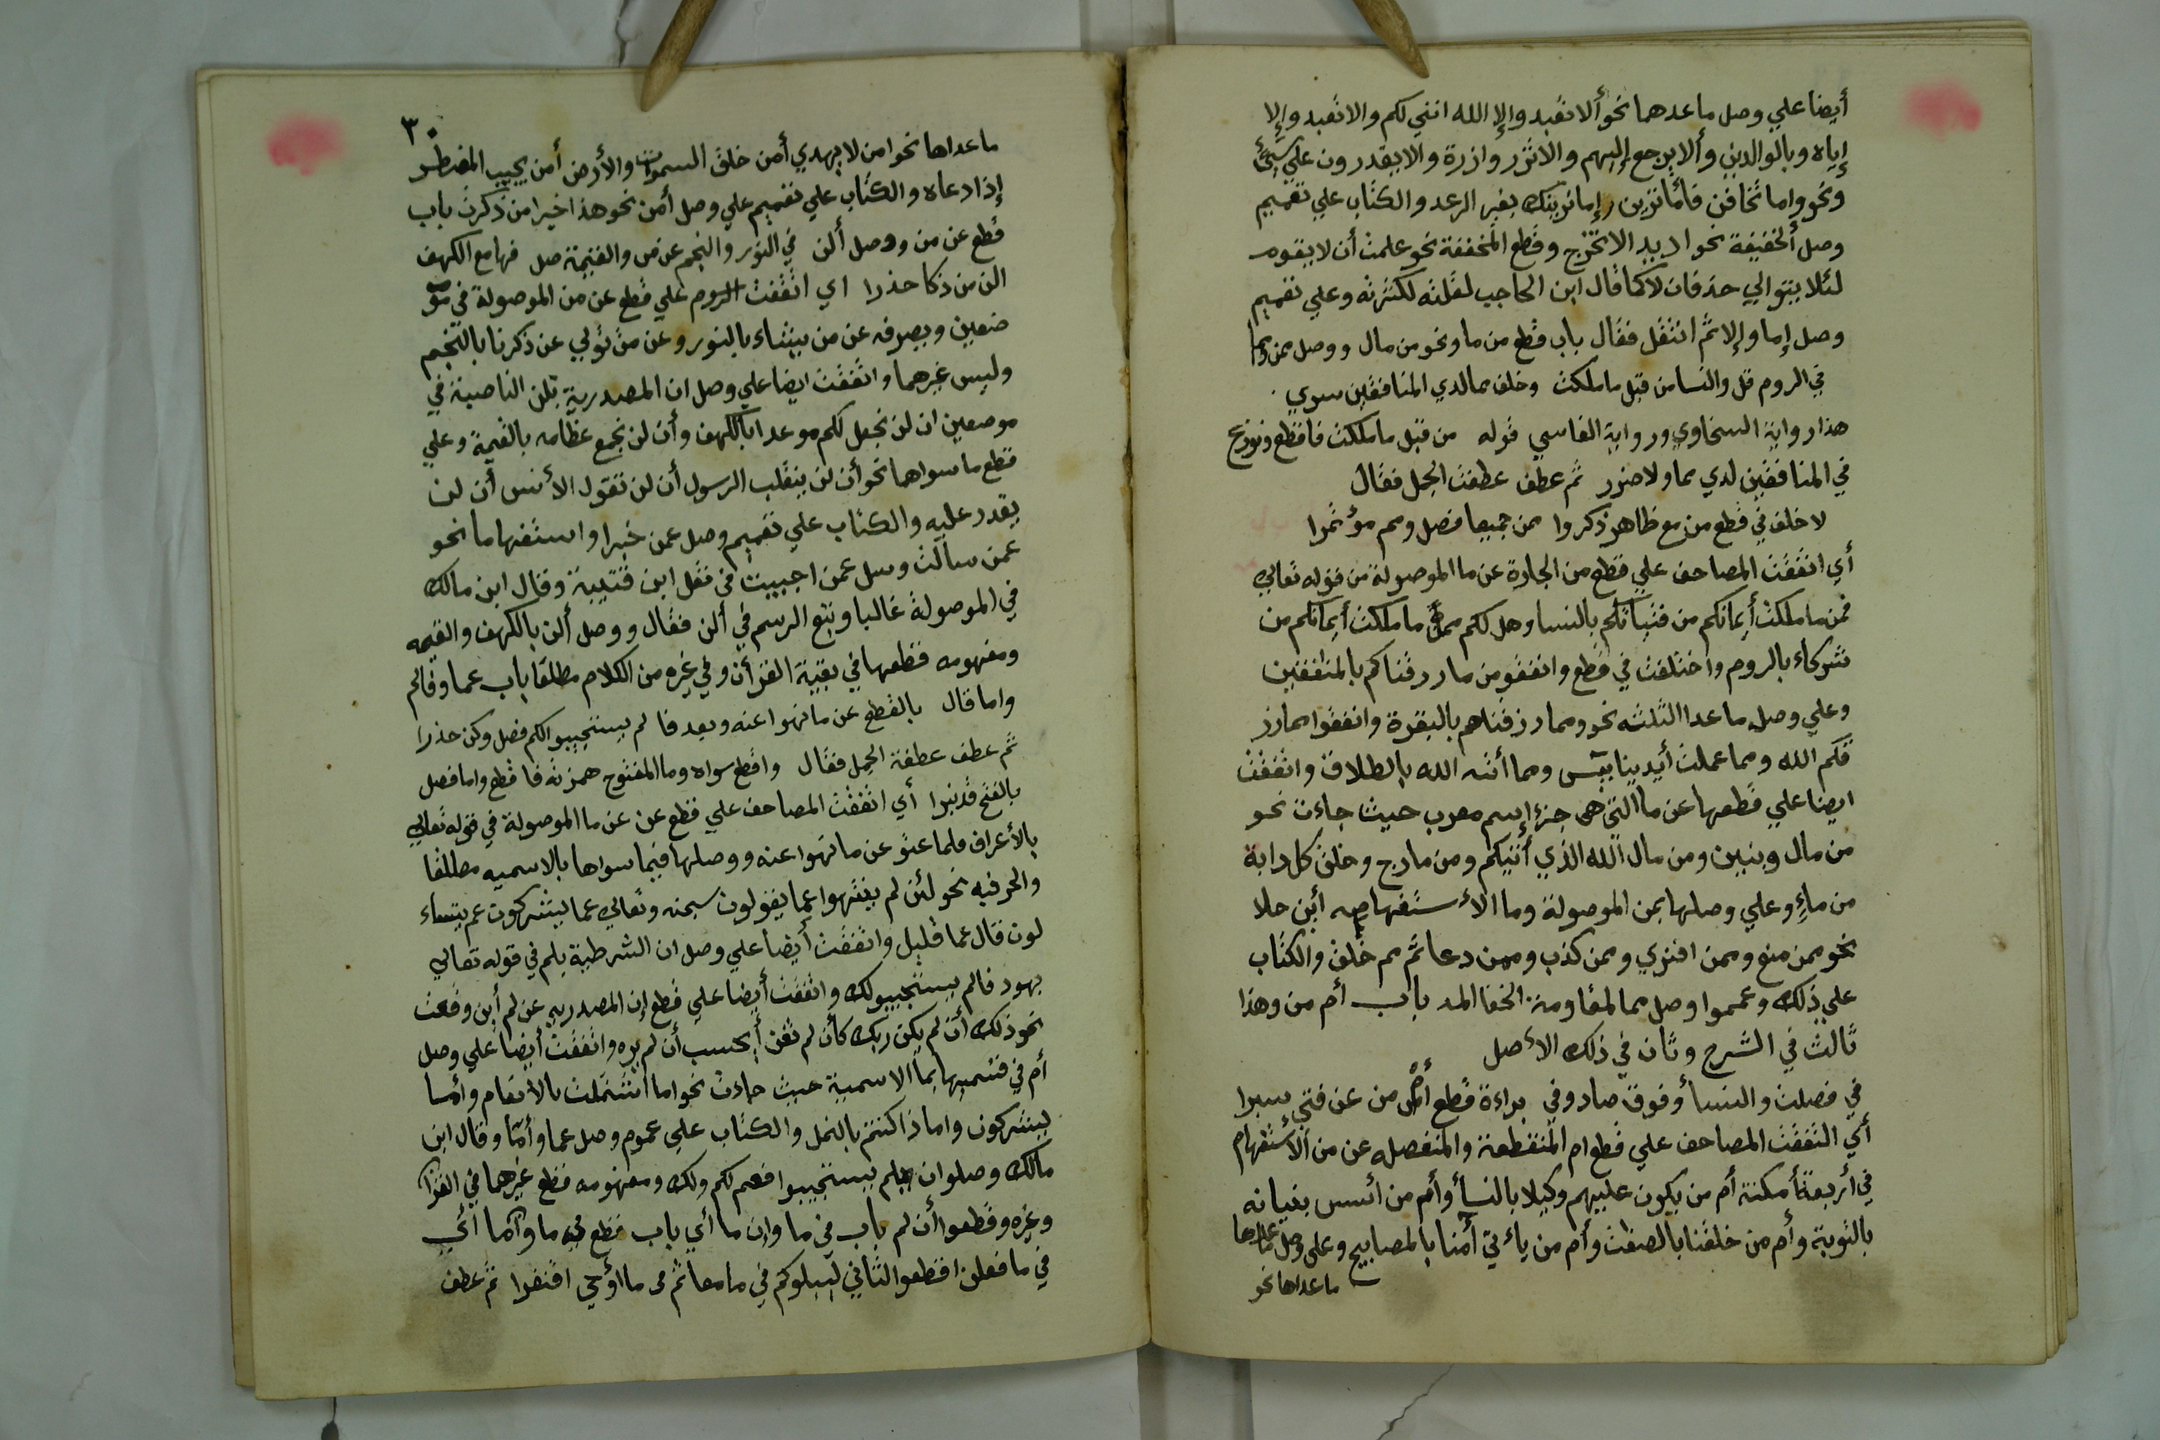 أيضا علي وصل ماعدهما نحو ألا تعبدوا إلا الله انني لكم والا تعبدوا إلا
إياه وبالوالدين وألا يرجع إليهم والا تزر وازرة والا يقدرون علي شيئ
ونحو واما تخافن فأما ترين وإما نرينك بغير الرعد والكتاب علي تعميم
وصل الخفيفة نحو اريد الا تخرج وقطع المخففة نحو علمت أن لا يقوم
لئلا يتوالي حذفان لا كما قال ابن الحاجب لقلته لكثرته وعلي تعميم
وصل إما وإلا ثم انتقل فقال باب قطع من ما ونحو من مال ووصل ممن ومما
في الروم قل والنسا من قبل ما ملكت وخلف مما لدي المنافقين سوي
هذا رواية السخاوي ورواية الفاسي قوله من قبل ما ملكت فاقطع ونوزع
في المنافقين لدي مما ولا ضرر ثم عطف عطفت الجمل فقال
لا خلف في قطع من مع ظاهر ذكروا ممن جميعا فصل ومم مؤتمرا
أي اتفقت المصاحف علي قطع من الجارة عن ما الموصولة من قوله تعالي
فمن ما ملكت أيمانكم من فتياتكم بالنسا وهل لكم من ما ملكت أيمانكم من
شركاء بالروم واختلفت في قطع وانفقو من ما رزقناكم بالمنافقين
وعلي وصل ما عدا الثلثه نحو ومما رزقناهم بالبقرة وانفقوا مما رز
قكم الله ومما عملت أيدينا بيس ومما أتنه الله بالطلاق واتفقت
ايضا علي قطعها عن ما التي هي جزء إسم معرب حيث جاءت نحو
من مال وبنين ومن مال الله الذي أتيكم ومن مارج وخلق كل دابة
من ماء وعلي وصلها بمن الموصولة وما الأستفهاميه أين حلا
نحو ممن منع وممن افتري وممن كذب وممن دعا ثم مم خلق والكتاب
علي ذلك وعمموا وصل مما لمقاومة الخفا المد باب أم من وهذا
ثالث في الشرح وثان في ذلك الأصل
في فصلت والنسا وفوق صاد وفي براءة قطع أم من عن فتي سبرا
أي اتفقت المصاحف علي قطع ام المنقطعة والمنفصله عن من الأستفهام
في أربعة أمكنة أم من يكون عليهم وكيلا بالنسأ وأم من اسس بنيانه
بالتوبة وأم من خلقنا بالصفت وأم من ياءتي أمنا بالمصابيح وعلى وصل ماعداها
ماعداها نحو
٣٠
ماعداها نحو امن لا يهدي أمن خلق السموات والأرض أمن يجيب المضطر
إذا دعاه والكتاب علي تعميم علي وصل أمن نحو هذا خير امن ذكرت باب
قطع عن من ووصل ألن في النور والنجم عن من والقيمة صل فيها مع الكهف
الن من ذكا حذرا اي اتفقت الروم علي قطع عن من الموصولة في مو
ضعين ويصرفه عن من يشاء بالنور وعن من تولي عن ذكرنا بالنجم
وليس غيرهما واتفقت ايضا علي وصل ان المصدرية بلن الناصبة في
موضعين ان لن نجعل لكم موعدا بالكهف وأن لن نجمع عظامه بالقيمة وعلي
قطع ما سواهما نحو أن لن ينقلب الرسول أن لن تقول الأنس أن لن
يقدر عليه والكتاب علي تعميم وصل عمن خبرا واستفهاما نحو
عمن سألت وسل عمن اجبيت في نقل ابن قتيبة وقال ابن مالك
في الموصولة غالبا وتتبع الرسم في ألن فقال ووصل ألن بالكهف والقيمه
ومفهومه قطعها في بقية القرأن وفي غيره من الكلام مطلقا باب عما وفالم
واما قال بالقطع عن ما نهوا عنه وبعد فا لم يستجيبوا لكم فصل وكن حذرا
ثم عطف عطفة الجمل فقال واقطع سواه وما المفتوح همزته فاقطع واما فصل
بالفتح قد نبرا أي اتفقت المصاحف علي قطع عن عن ما الموصولة في قوله تعالي
بالأعراف فلما عتو عن ما نهوا عنه ووصلها فيما سواها بالاسميه مطلقا
والحرفيه نحو لئن لم ينتهوا عما يقولون سبحنه وتعالي عما يشركون عم يتساء
لون قال عما قليل واتفقت أيضا علي وصل ان الشرطية بلم في قوله تعالي
بهود فالم يستجيبو لك واتفقت أيضا علي قطع إن المصدريه عن لم أين وقعت
نحو ذلك أن لم يكن ربك كأن لم تغن أيحسب أن لم يره واتفقت أيضا علي وصل
أم في قسميها بما الاسمية حيث جاءت نحو اما اشتملت بالأنعام وأما
يشركون واما ذا كنتم بالنمل والكتاب علي عموم وصل عما وأما وقال ابن
مالك وصلوان بلم يستجيبوا فعم لكم ولك ومفهومه قطع غيرهما في القران
وغيره وقطعوا أن لم باب في ما وان ما أي باب قطع في ما وانما اتي
في ما فعلن اقطعوا الثاني ليبلوكم في ما معا ثم في ما اؤحي اقتفرا ثم عطف